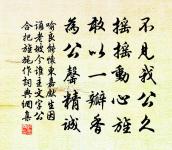 不見我公久
搖搖動心旌
敢以一瓣香
為公馨精誠
喻良能懷東嘉獻生因
誦老坡今誰主文字公
合把旌旄作詞典詞集